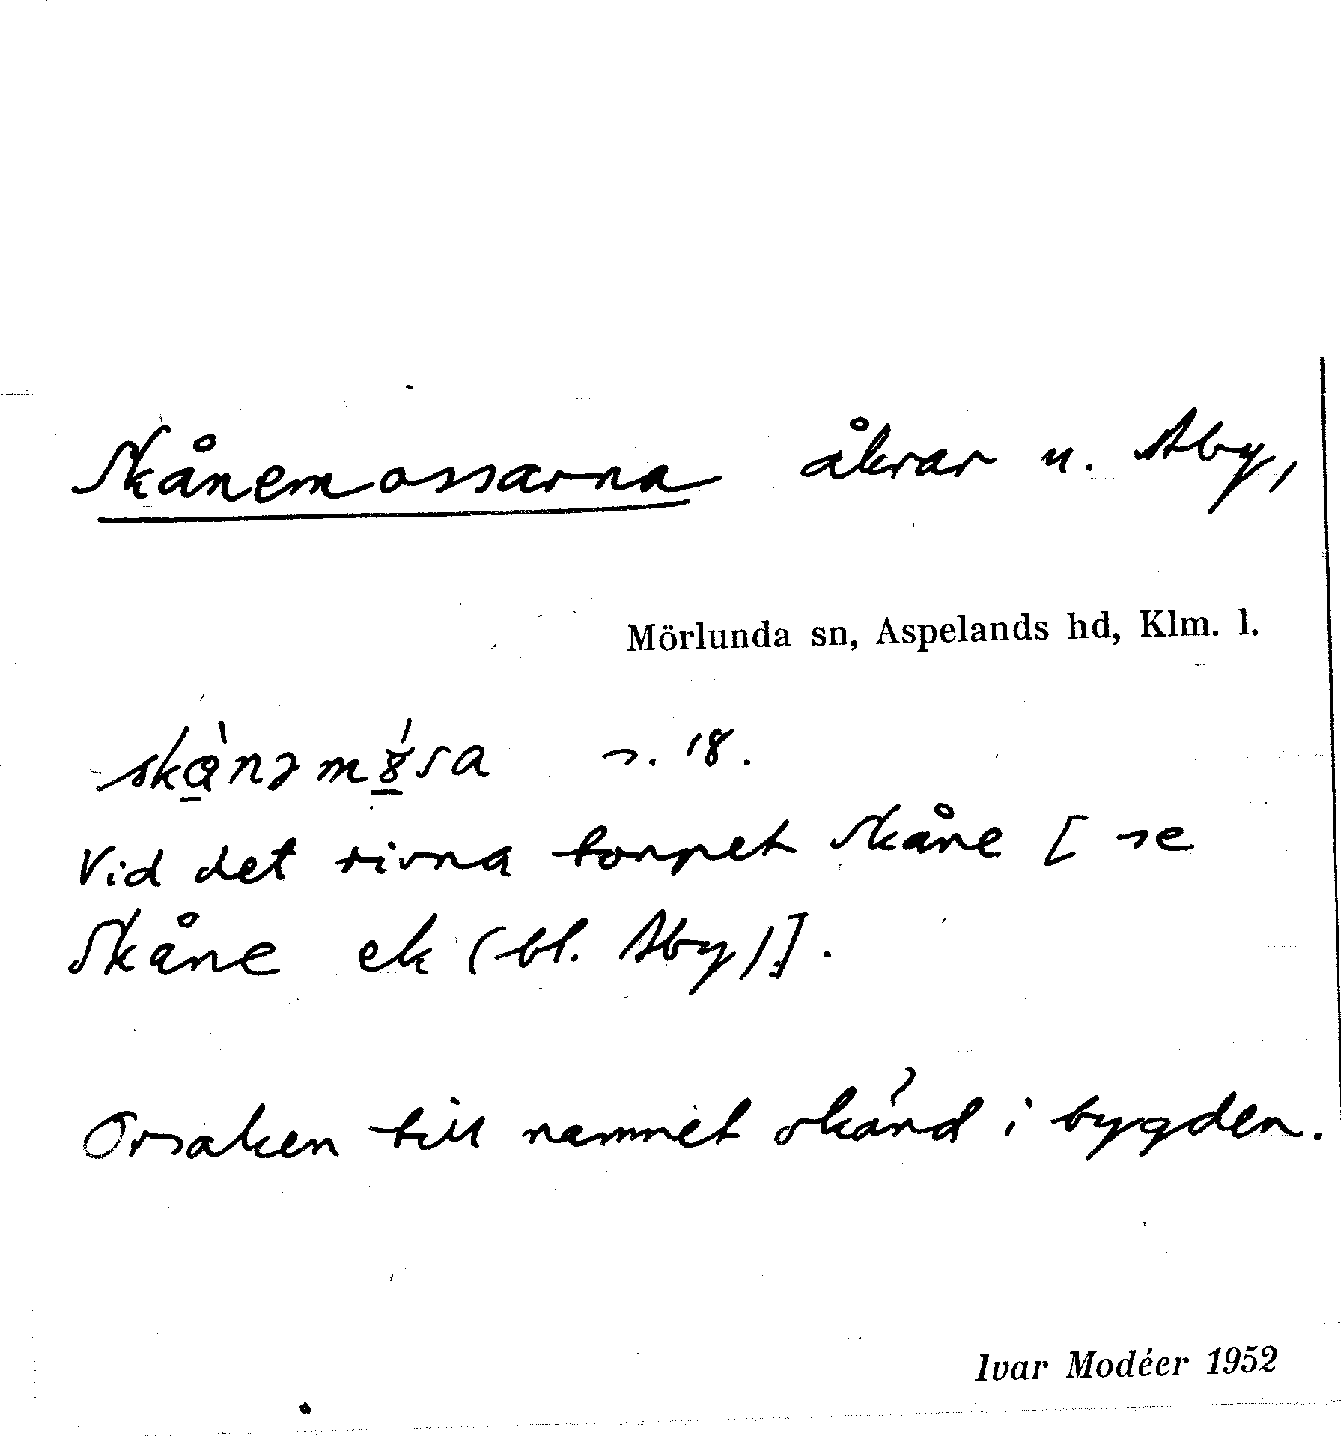 Skånemossarna åkrar u. Åby,
Mörlunda sn, Aspelands hd, Klm. l.
s. 18.
Vid det rivna torpet Skåne [se
Skåne ek (bl. Åby)].
Orsaken till namnet okänd i bygden.
Ivar Modéer 1952